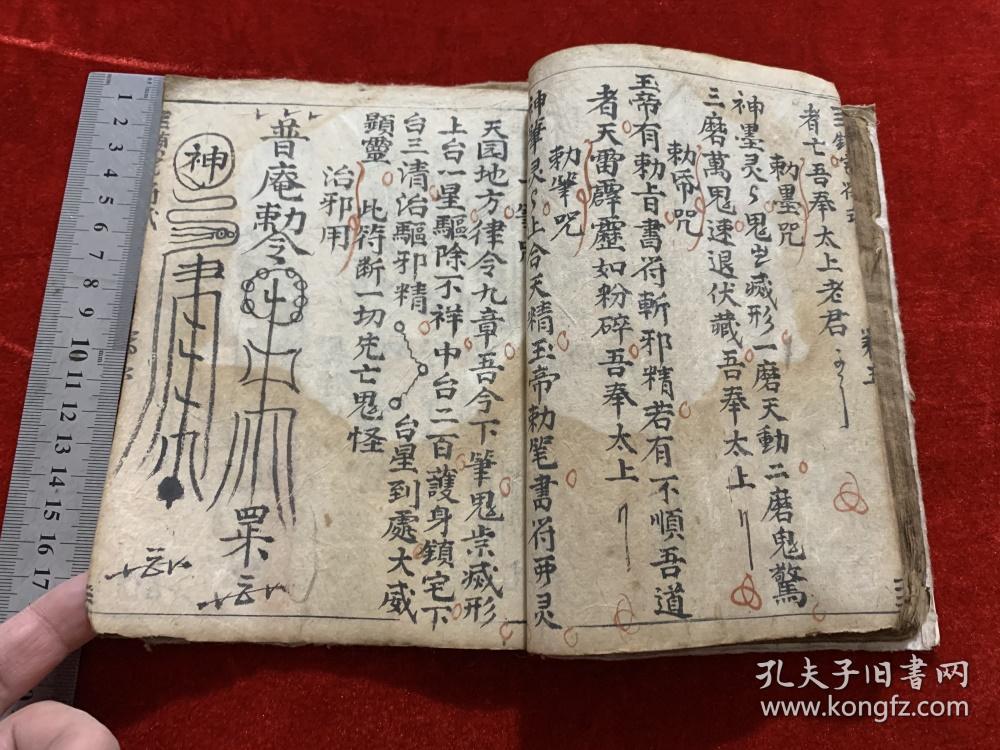 者七吾奉太上老君
勅墨咒
神墨灵〻鬼㞢滅形一磨天動二磨鬼驚
三磨萬鬼速退伏藏吾奉太上
勅帋咒
玉帝有勅旨書符斬邪精若有不順吾道
者天雷霹靂如粉碎吾奉太上
勅筆咒
神筆灵〻上合天精玉帝勅笔書符
天园地方律令九章吾今下筆鬼祟滅形
上台一星驅除不祥中台二百護身鎮宅下
台三清治驅邪精
台星到處大威
顯靈
此符断一切先亡鬼怪
治邪用
普庵勅令
神
1
2
3
4
5
6
7
8
9
10
11
12
13
14
15
16
17
孔夫子旧書网
www.kongfz.com